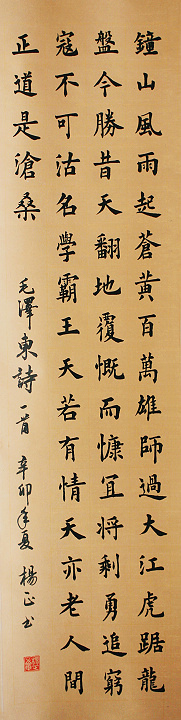 鐘山風雨起蒼黃百萬雄師過大江虎踞龍
盤今勝昔天翻地覆慨而慷宜將剩勇追窮
寇不可沽名學霸王天若有情天亦老人間
正道是滄桑
毛澤東詩一首 辛卯年夏 楊正书